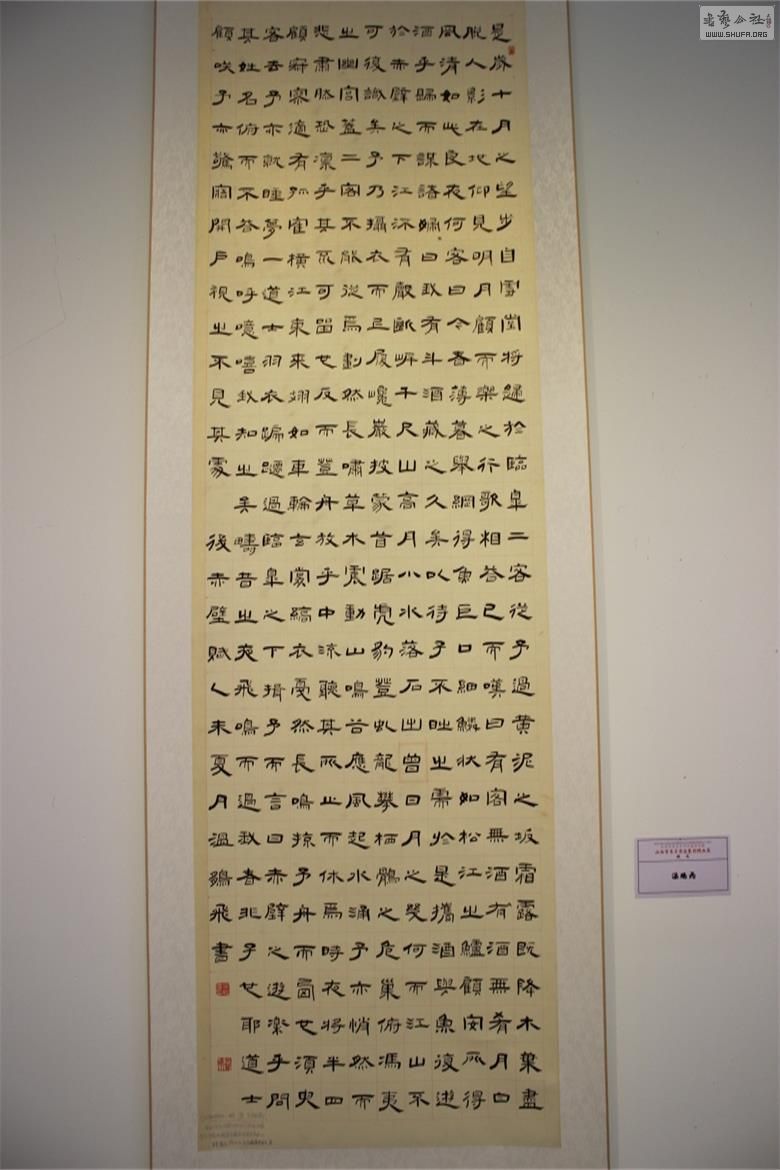 是歲十月之望步自雪堂將歸於臨皋二客從予過黃泥之坂霜露既降木葉盡
脫人影在地仰見明月顧而樂之行歌相答已而嘆曰有客無酒有酒無肴月白
風清如此良夜何客曰今者薄暮舉網得魚巨口細鱗狀如松江之鱸顧安所得
酒乎歸而謀諸婦曰我有斗酒藏之久矣以待子不時之需於是攜酒與魚復遊
於赤壁之下江流有聲斷岸千尺山高月小水落石出曾日月之幾何而江山不
可復識矣予乃攝衣而上履巉巖披蒙茸踞虎豹登虬龍攀栖鶻之危巢俯馮夷
之幽宮蓋二客不能從焉劃然長嘯草木震動山鳴谷應風起水涌予亦悄然而
悲肅然恐凜乎其不可留也反而登舟放乎中流聽其所止而休焉時夜將半四
顧寂寥適有孤鶴橫江東來翅如車輪玄裳縞衣戛然長鳴掠予舟而西也須臾
客去予亦就睡夢一道士羽衣蹁躚過臨皋之下揖予而言曰赤壁之遊樂乎問
其姓名俯而不答嗚呼噫嘻我知之矣疇昔之夜飛鳴而過我者非子也耶道士
顧笑予亦驚寤開戶視之不見其處 後赤壁賦 乙未夏月溫鵬飛書
温鹏飞
书艺公社
WWW.SHUFA.ORG